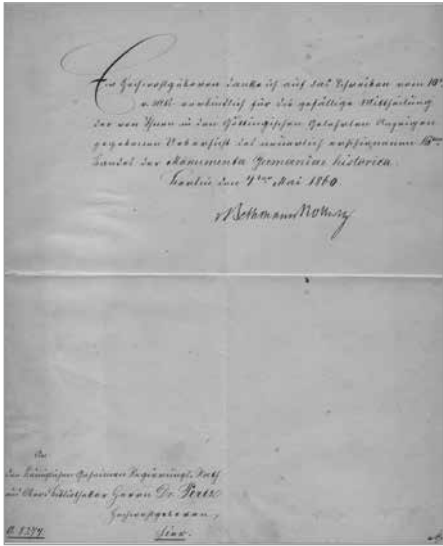 Ew Hochwohlgeboren danke ich auf das Schreiben vom 10n
v. Mts verbindlich für die gefällige Mittheilung
der von Ihnen in den Göttingischen Gelehrten Anzeigen
gegebenen Uebersicht des neuerlich erschienenen 16ten
Bandes der Monumenta Germaniae historica.
Berlin den 7ten Mai 1860.
Bethmann Hollweg
An
den Königlichen Geheimen Regierungs-Rath
und Ober-Bibliothekar Herrn Dr. Pertz
Hochwohlgeboren,
hier.